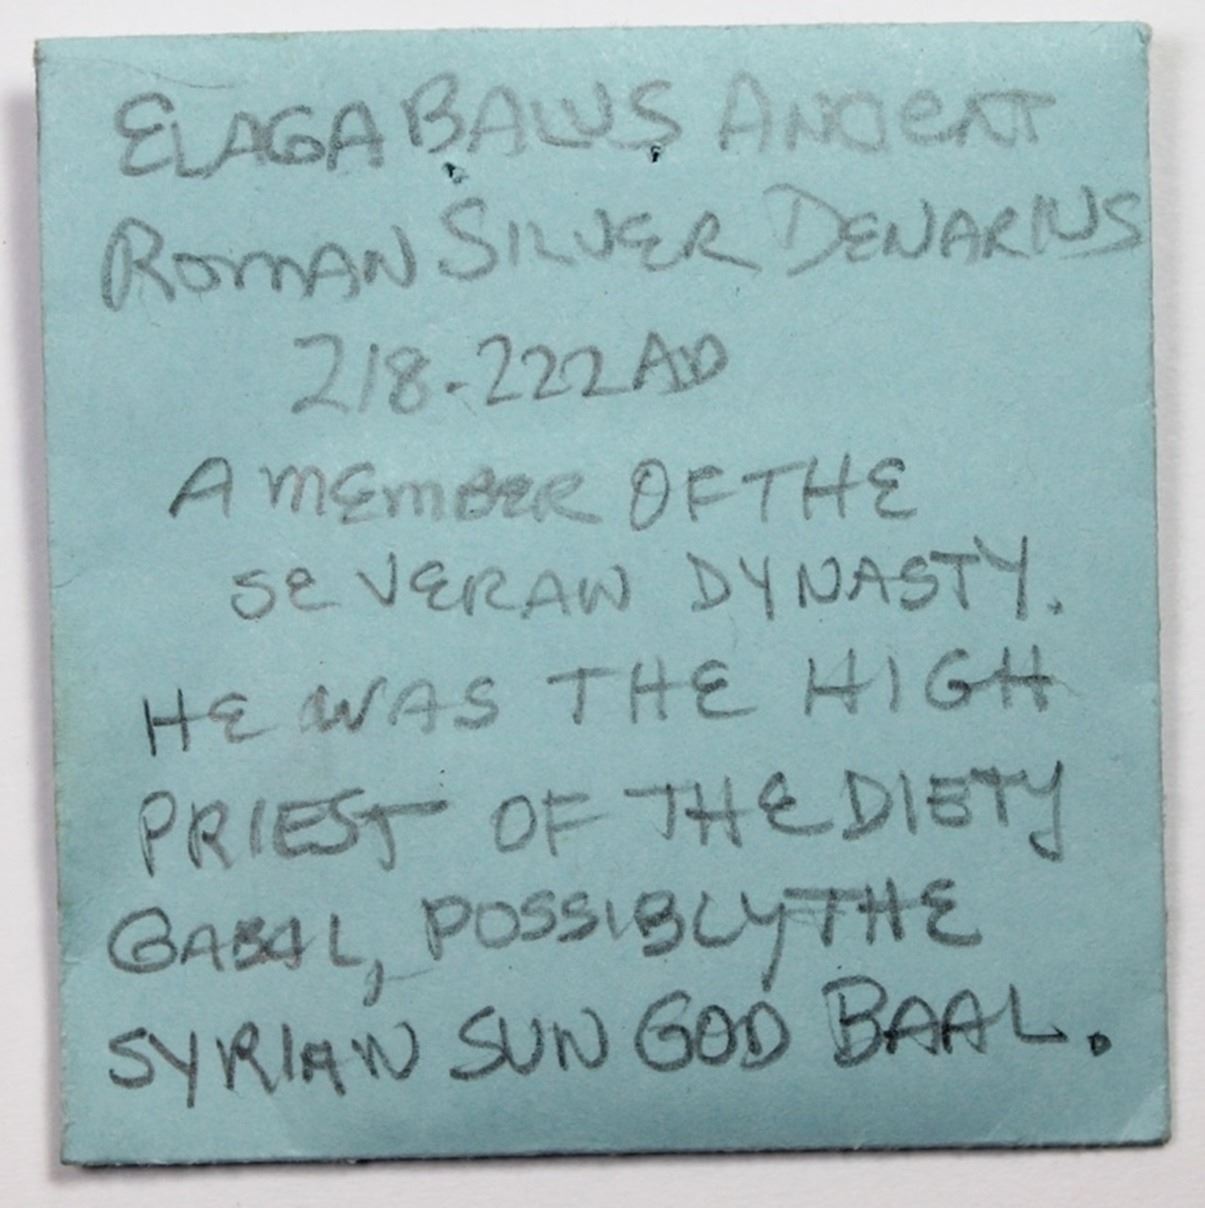 ELAGABALUS ANCIENT
ROMAN SILVER DENARIUS
218-222 AD
A MEMBER OF THE
SEVERAN DYNASTY.
HE WAS THE HIGH
PRIEST OF THE DIETY
GABAL, POSSIBLY THE
SYRIAN SUN GOD BAAL.